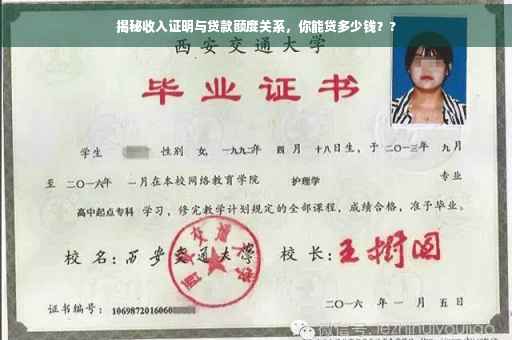 揭秘收入证明与贷款额度关系，你能贷多少钱？？
西安交通大学
毕业证书
学生 性别 女，一九九二年 四 月 十八日生，于 二〇一三年 九月
至 二〇一六年 一月在本校网络教育学院 护理学 专业
高中起点专科 学习，修完教学计划规定的全部课程，成绩合格，准予毕业。
校 名：西安交通大学 校 长：王树国
西安交通大学
证书编号：1069872016060
二〇一六 年 一 月 五 日
微信号:jiezhinuiyoujiao